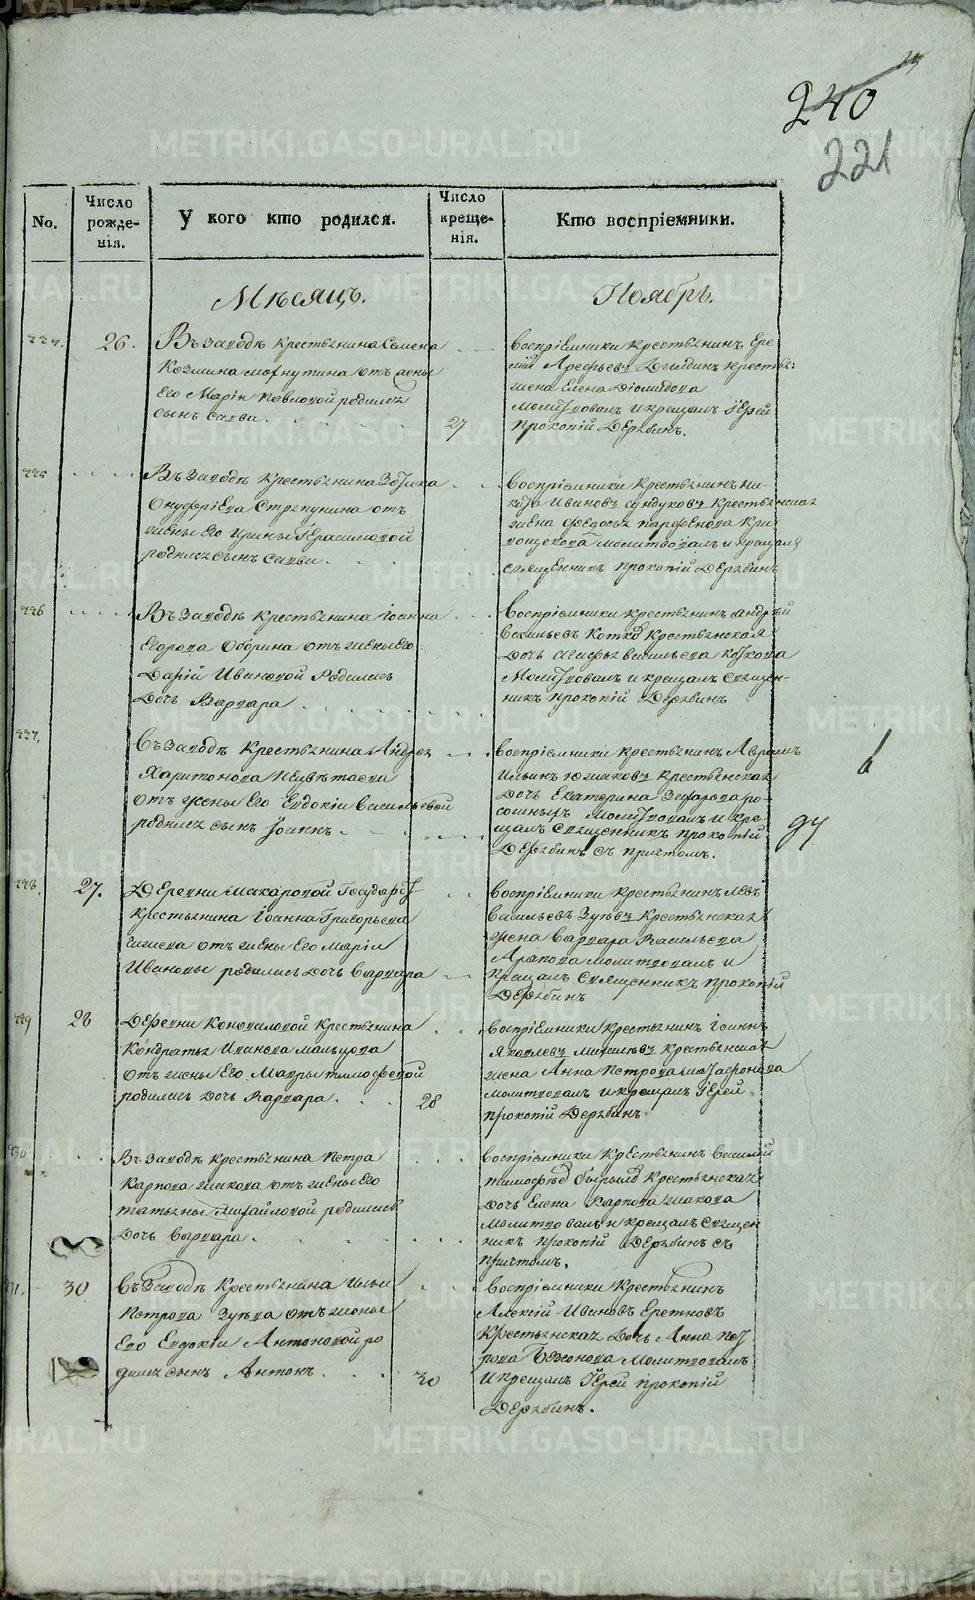 240
221
No.
Число рожде-нія.
У кого кто родился.
Число креще-нія.
Кто воспріемники.
Мѣсяцъ.
Ноябрь.
224.
26.
Въ Заводѣ крестьянина Семена
Козмина отъ жены
Его Маріи Павловой родился
сынъ Савва.
27
воспріемники крестьянинъ Ере
мій Арефьевъ крестьян:
жена Елена
Молитвовалъ и крещалъ Іерей
Прокопій Дерябинъ.
225
Въ Заводѣ крестьянина
Онуфріева Стрепунина отъ
жены Его Ирины Герасимовой
родился сынъ Савва.
воспріемники Крестьянинъ Ни-
кита Ивановъ Сундуковъ Крестьянская
жена Федосья Парфенова Кри
вощекова Молитвовалъ и крещалъ
священникъ Прокопій Дерябинъ
226
Въ Заводѣ крестьянина Іоанна
Егорова Оборина отъ жены Его
Даріи Ивановой Родилась
Дочь Варвара
Воспріемники крестьянинъ Андрей
Васильевъ Крестьянская
Дочь Агафья Васильева
Молитвовалъ и крещалъ священ-
никъ Прокопій Дерябинъ
227.
въ Заводѣ Крестьянина Андрея
Харитонова
отъ жены Его Евдокіи Васильевой
родился сынъ Іоаннъ.
воспріемники крестьянинъ Аврамъ
Ильинъ Югжаковъ Крестьянская
Дочь Екатерина Захарова ро-
Молитвовалъ и кре
щалъ священникъ Прокопій
Дерябинъ съ причтомъ.
6
94
228.
27.
Деревни Макаровой Государст
крестьянина Іоанна Григорьева
отъ жены Его Маріи
Ивановы родилась дочь Варвара
воспріемники крестьянинъ Левъ
Васильевъ Зуевъ Крестьянская
жена Варвара Васильева
Арапова молитвовалъ и
крещалъ священникъ Прокопій
Дерябинъ
229
28
Деревни Коноваловой Крестьянина
Кондратья Иванова Мальцова
отъ жены Его Мавры Тимофеевой
родилась дочь Варвара.
28
воспріемники Крестьянинъ Іоаннъ
Яковлевъ Крестьянская
жена Анна Петрова
молитвовалъ и крещалъ Іерей
Прокопій Дерябинъ
230
Въ Заводѣ крестьянина Петра
Карпова Шакова отъ жены Его
Татьяны Михайловой родилась
Дочь Варвара.
воспріемники Крестьянинъ Василій
Крестьянская
Дочь Елена Карпова Шакова
Молитвовалъ и крещалъ священ
никъ Прокопій Дерябинъ съ
Причтомъ.
231.
30
въ Заводѣ Крестьянина Ильи
Петрова Зуева отъ жены
Его Евдокіи Антоновой ро
дился сынъ Антонъ.
30
воспріемники Крестьянинъ
Алексій Ивановъ Еретновъ
Крестьянская Дочь Анна Пет
рова Молитвовалъ
и крещалъ Іерей Прокопій
Дерябинъ.
METRIKI.GASO-URAL.RU